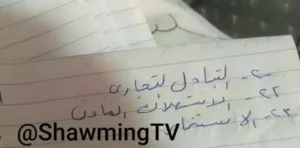 ٢٠- التبادل لتجارى
٢٢- الاستهلاك العادى
٢٣- الاستثمار
@ShawmingTV